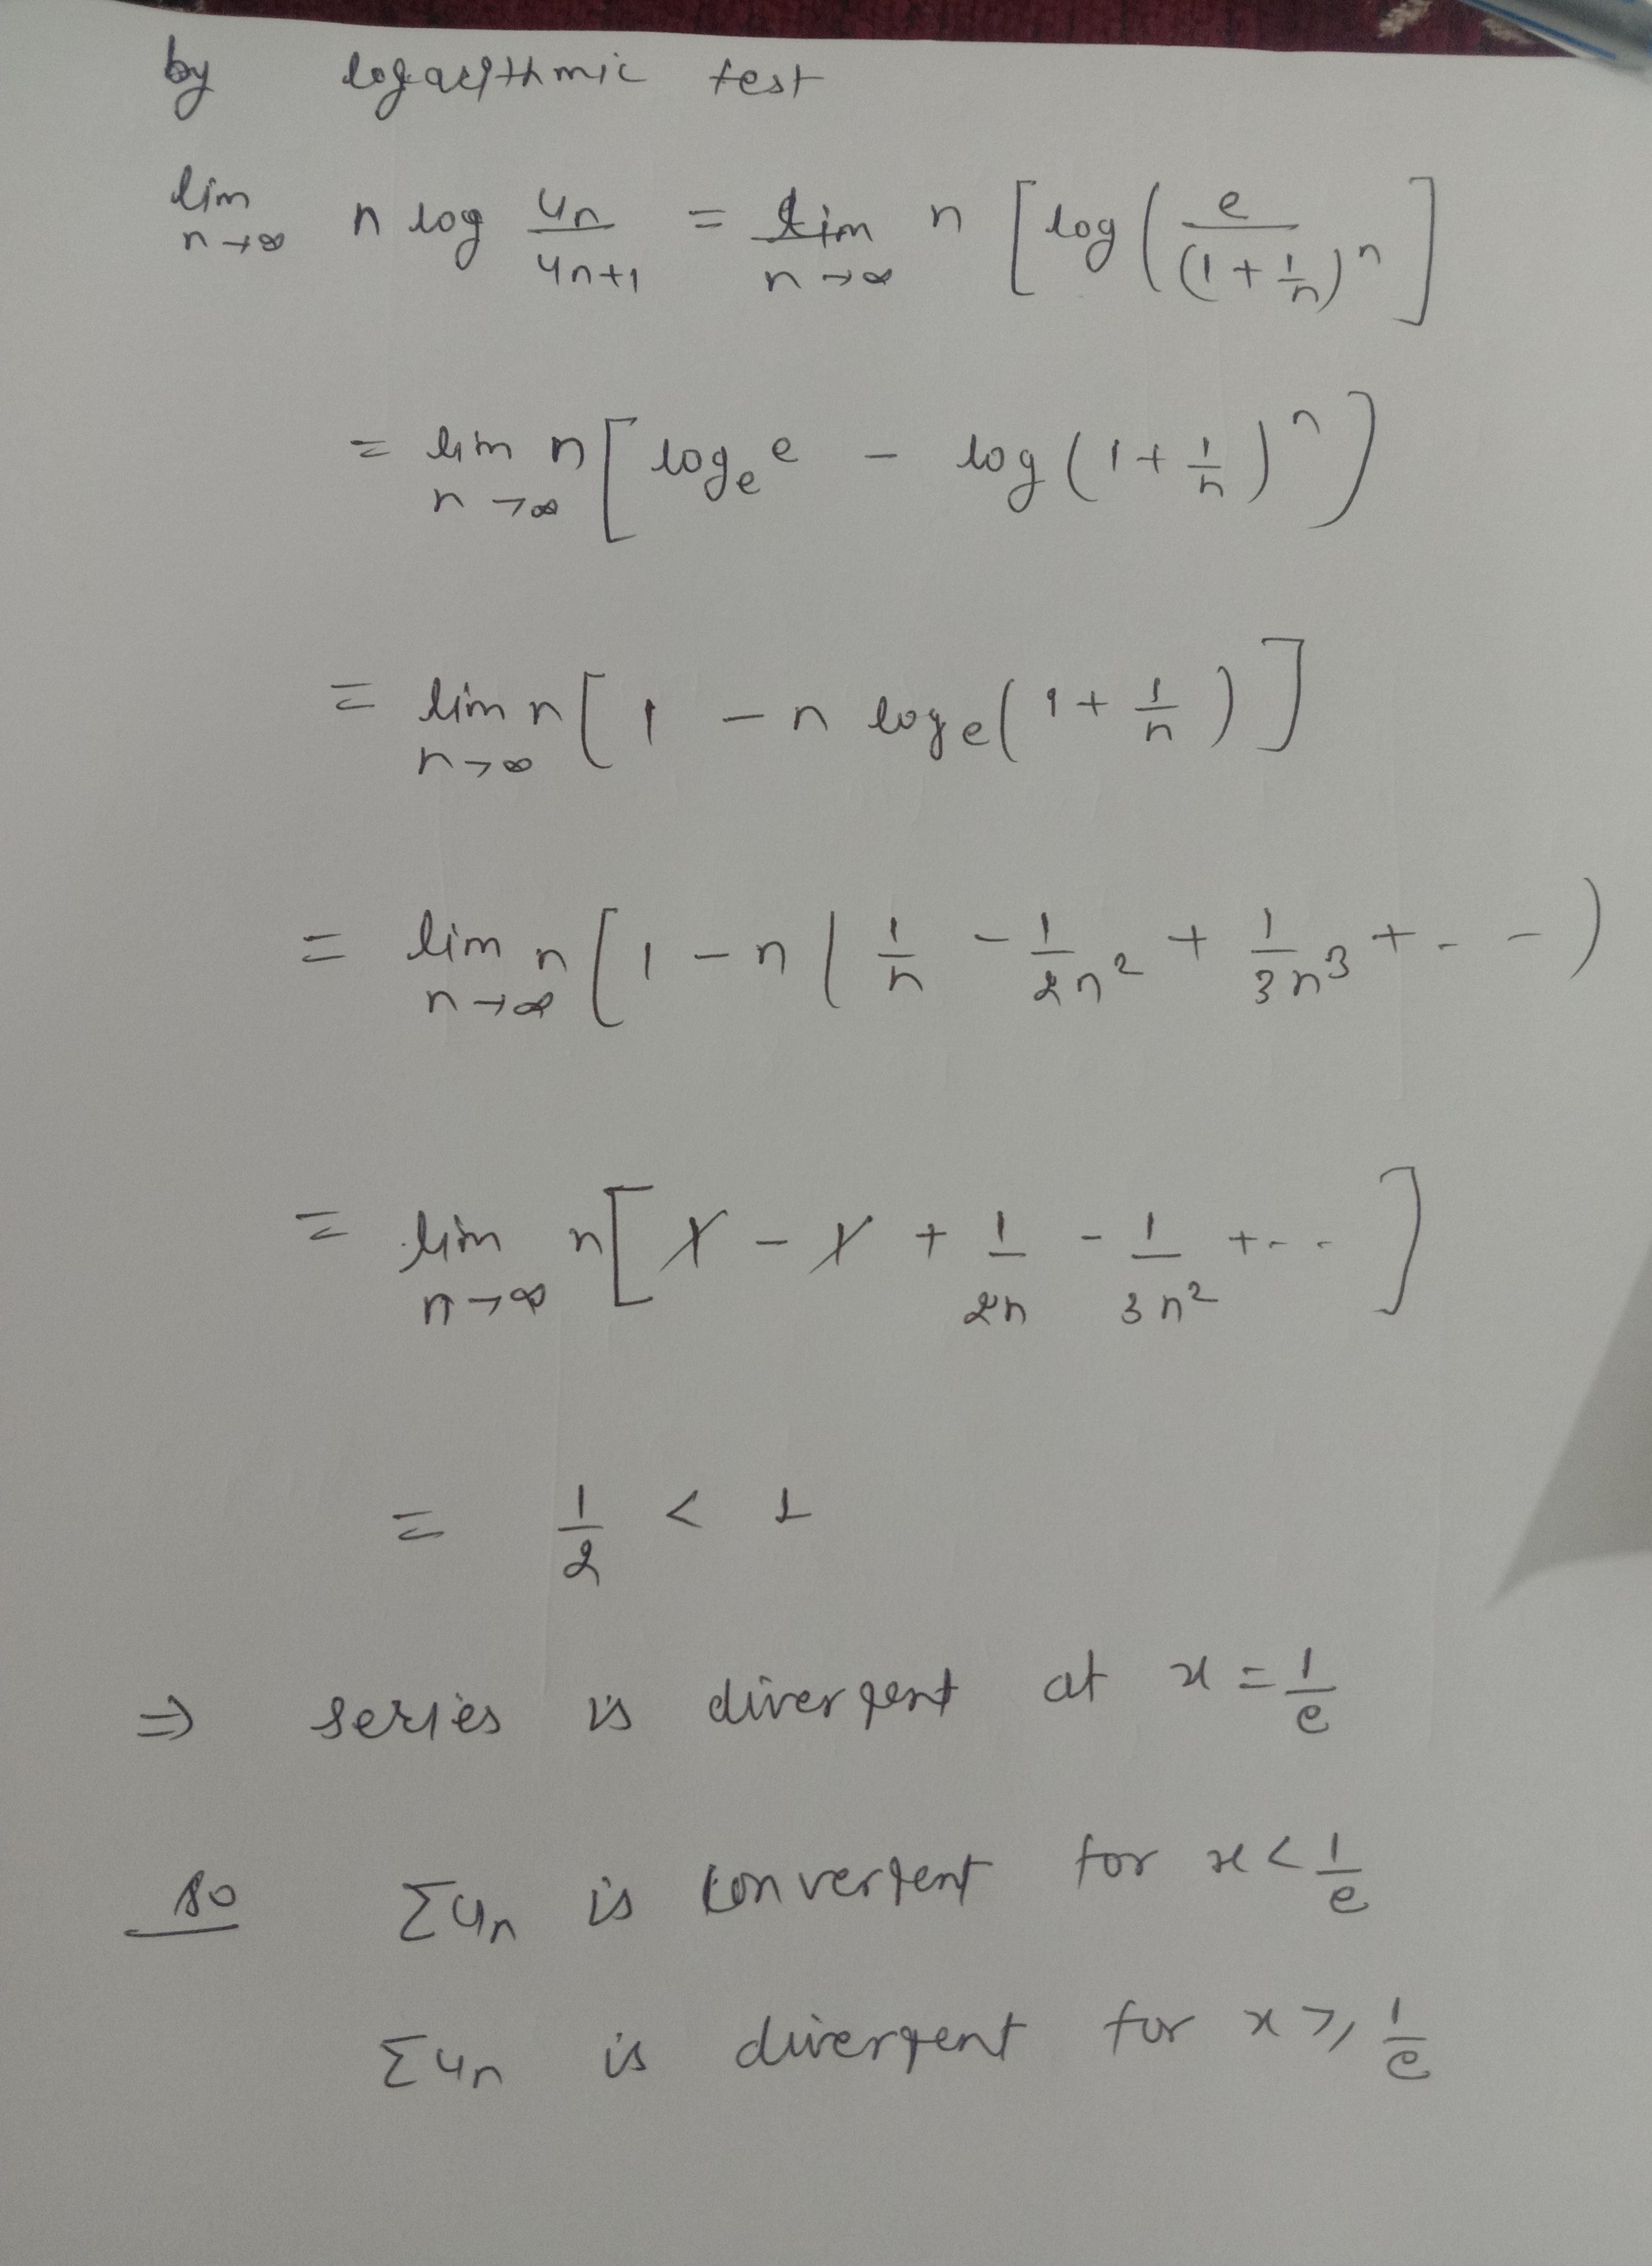 by logarithmic test
lim n→∞ n log u_n/u_{n+1} = lim n→∞ n [ log ( e/(1 + 1/n)^n ]
= lim n→∞ n [ log_e e − log ( 1 + 1/n )^n ]
= lim n→∞ n [ 1 − n log_e ( 1 + 1/n ) ]
= lim n→∞ n [ 1 − n ( 1/n − 1/2n² + 1/3n³ + - - )
= lim n→∞ n [ 1 − 1 + 1/2n − 1/3n² + - - ]
= 1/2 < 1
⇒ series is divergent at x = 1/e
so Σu_n is convergent for x < 1/e
Σu_n is divergent for x ≥ 1/e